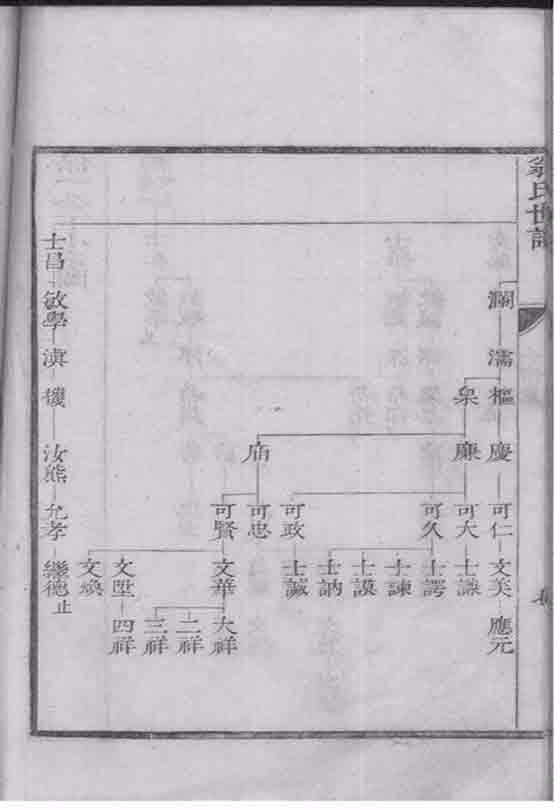 翁氏世譜
瀾 濡 樞 慶 可仁 文美 應元
廉 可大 士謙
可久 士諤
士諫
士謨
士訥
可政 士誠
庙 可忠
可賢 文華 大祥
二祥
三祥
文陞 四祥
文煥
士昌 敏學 滇 汝熊 允孝 繼德止